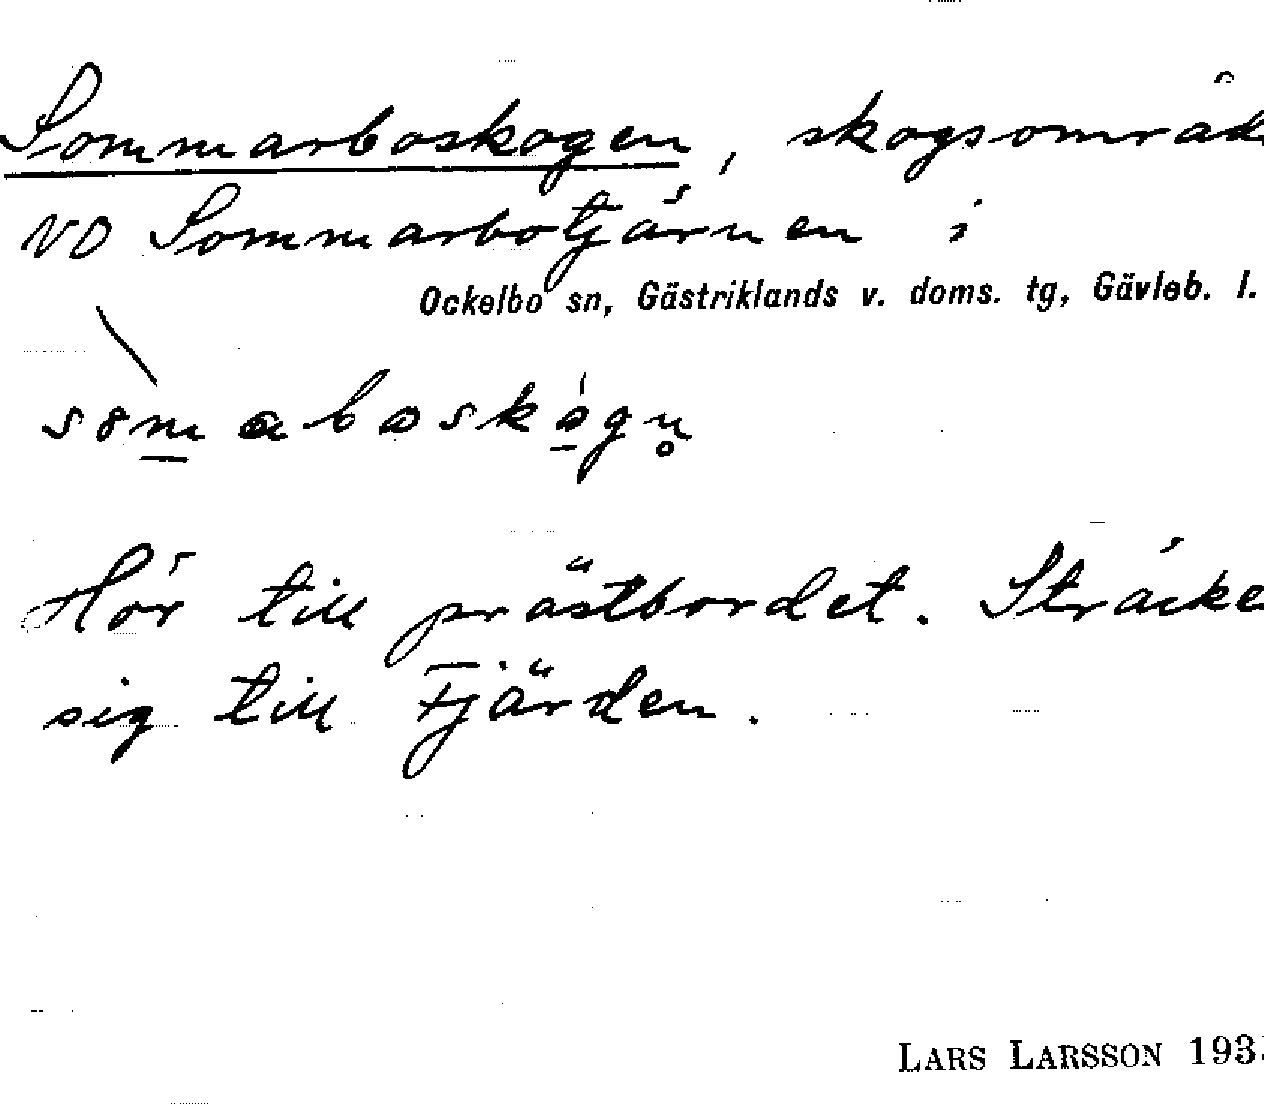 Sommarboskogen, skogsområd
NO Sommarbotjärnen i
Ockelbo sn, Gästriklands v. doms. tg, Gävleb. l.
Hör till prästbordet. Sträcke
sig till Fjärden.
LARS LARSSON 193